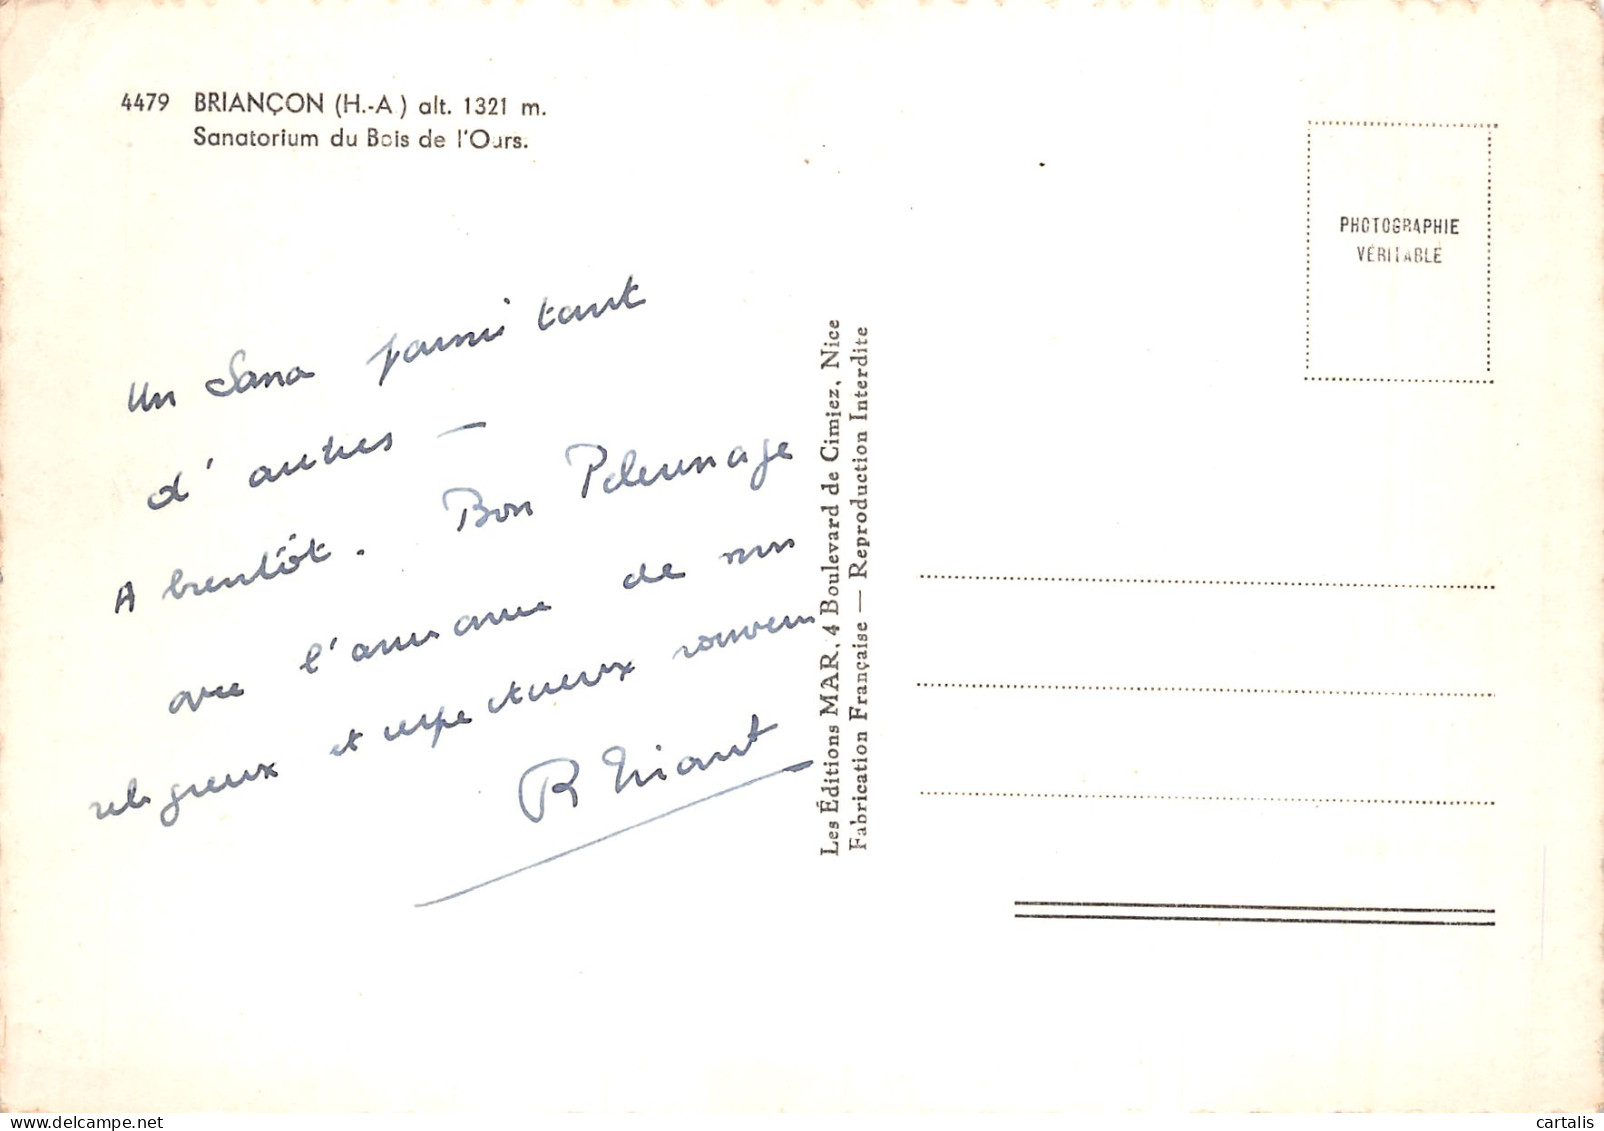 4479 BRIANÇON (H.-A) alt. 1321 m.
Sanatorium du Bois de l'Ours.
PHOTOGRAPHIE
VÉRITABLE
Un Sana parmi tant
d'autres —
A bientôt. Bon Pelerinage
avec l'assurance de mon
religieux et respectueux souvenir
R
Les Éditions MAR, 4 Boulevard de Cimiez, Nice
Fabrication Française — Reproduction Interdite
cartalis
delcampe.net